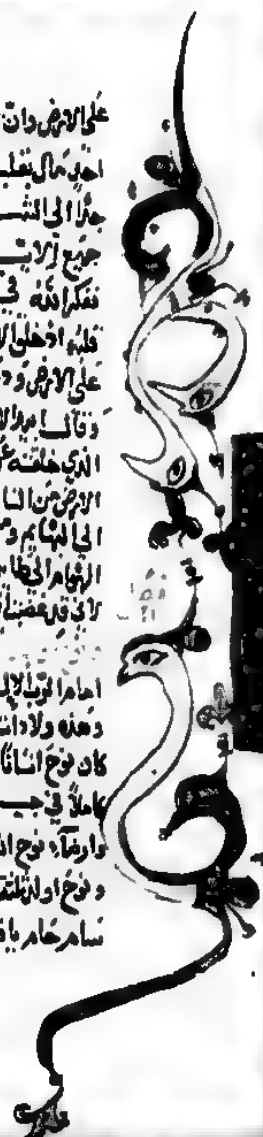 على الارض وان
احد مال بقلب
جدًا الى الشـ
جميع الايـ
ففكر الله في
قلبه اذ خلق الا
على الارض و
وقال ابيد الا
الذي خلقته
الارض من النا
الى البهايم و
الهوام الى طا
لاني قد غضبت
امام الرب الاله
وهذه ولادات
كان نوح انسانًا
كاملًا في جيـ
نوح
ونوح اولد ثلثة
سام حام يا